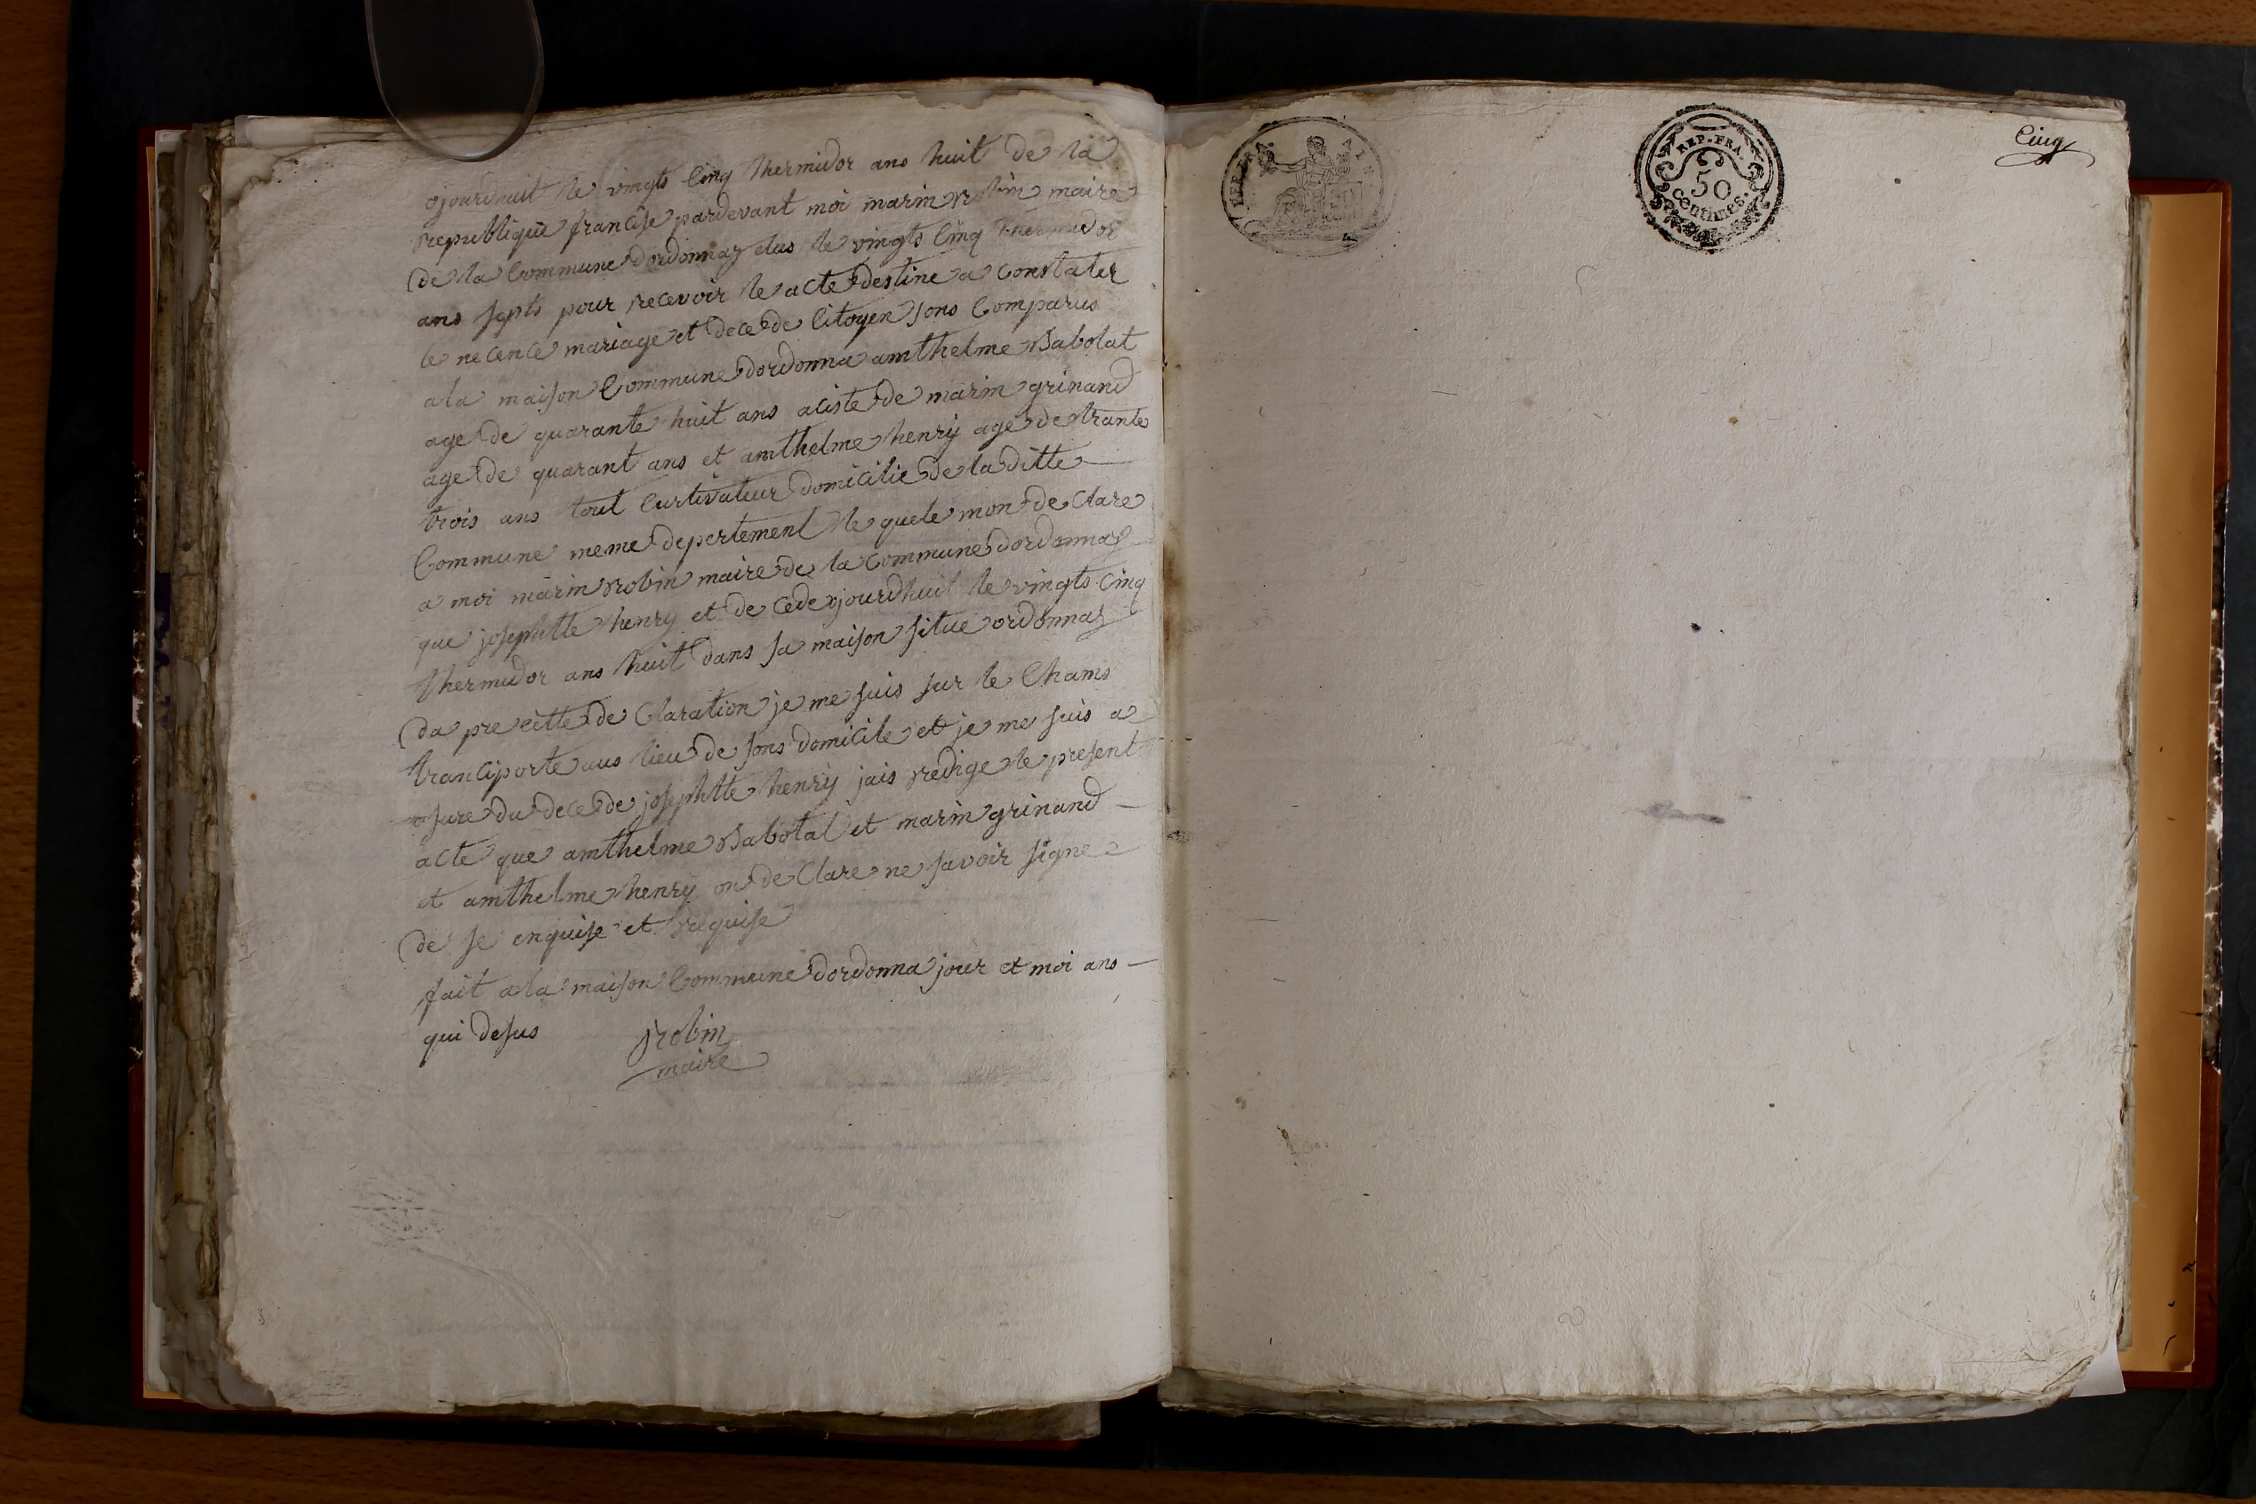 ojourdhuit le vingts Cinq thermidor ans huit de la
republique francise pardevant moi marin robin maire
de la Commune dordonnaz elus le vingts Cinq thermidor
ans septs pour recevoir le acte destine a constater
le necence mariage et dece de Citoyen sons Comparus
a la maison Commune dordonna amthelme Babolat
age de quarante huit ans aciste de marin grinand
age de quarant ans et amthelme henry age de trante
trois ans tout Curtivateur domicilie de la ditte
Commune meme depertement le quele mon de Clare
a moi marin robin maire de la Commune dordonnaz
que josephtte henry et de cede ojourdhuit le vingts Cinq
thermidor ans huit dans sa maison situe ordonnaz
da pre citte de Claration je me suis sur le Chams
tranciporte aus lieu de sons domicile et je me suis a
sure du dece de josephtte henry jais redige le present
acte que amthelme Babolat et marin grinand
et amthelme henry on de Clare ne savoir signe
de se enquise et requise
fait a la maison Commune dordonna jour et moi ans
qui desus
robin
maire
REP. FRA.
50
centimes.
Cinq